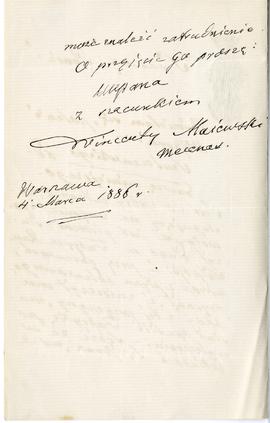 może znaleźć zatrudnienie.
O przyjęcie go proszę
z szacunkiem
Wincenty Majewski
Mecenas.
Warszawa
4 Marca 1886 r.